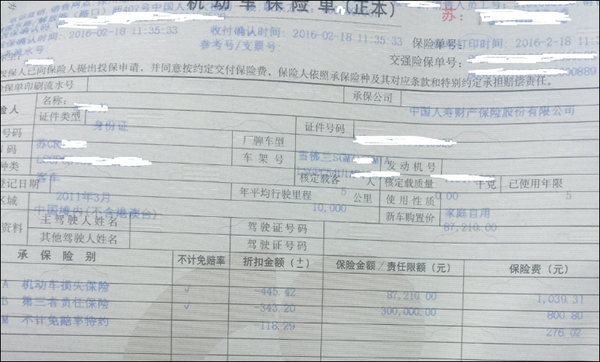 机动车保险单(正本)
苏:
确认时间:2016-02-18 11:35:33 收付确认时间:2016-02-18 11:35:33 保险单打印时间:2016-2-18 11:35:33
参考号/支票号: 交强险保单号: 00889
投保人已向保险人提出投保申请,并同意按约定交付保险费,保险人依照承保险种及其对应条款和特别约定承担赔偿责任。
保单印刷流水号 承保公司 中国人寿财产保险股份有限公司
名称:
证件类型 身份证 证件号码
苏C 厂牌车型 雪佛兰SGM
车架号 发动机号
种类 客车 核定载客 5 人 核定载质量 0.00 千克 已使用年限 5
登记日期 2011年3月 年平均行驶里程 10,000 公里 使用性质 家庭自用
区域 中国境内(不含港澳台) 新车购置价 87,210.00
资料 主驾驶人姓名 驾驶证号码
其他驾驶人姓名 驾驶证号码
承保险别 不计免赔率 折扣金额(±) 保险金额/责任限额(元) 保险费(元)
A 机动车损失保险 √ -445.42 87,210.00 1,039.31
B 第三者责任保险 √ -343.20 300,000.00 800.80
M 不计免赔率特约 -118.29 276.02